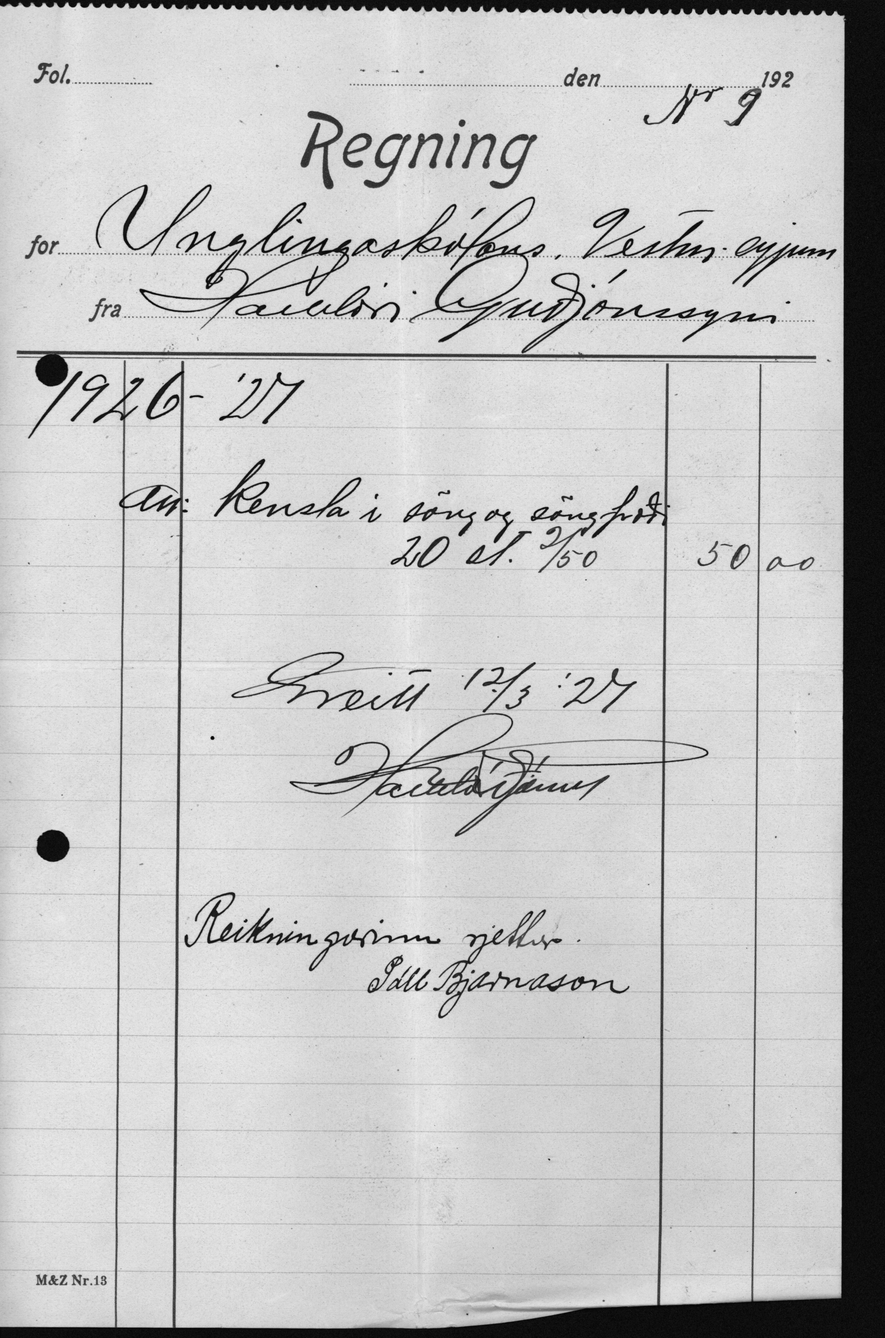 Fol. den 192
Nr 9
Regning
for Unglingaskólans, Vestm.eyjum
fra Halldóri Guðjónssyni
1926-'27
An: Kensla i söng og söngfræði
20 st. 2/50 50 00
Greitt 12/3 '27
Reikningurinn rjettur.
Páll Bjarnason
M&Z Nr.13